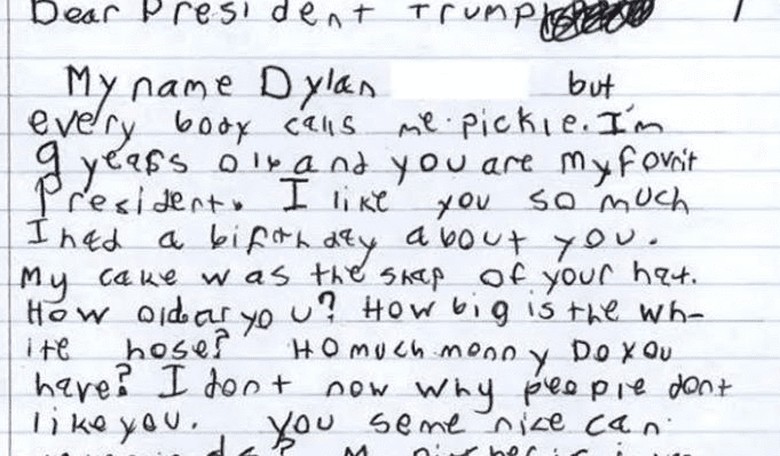 Dear President Trump
My name Dylan but
every body calls me pickle. I'm
9 years old and you are my fovrit
President. I like you so much
I had a birthday about you.
My cake was the shap of your hat.
How old ar you? How big is the wh-
ite hose? Ho much monny Do you
have? I dont now why people dont
like you. You seme nice can